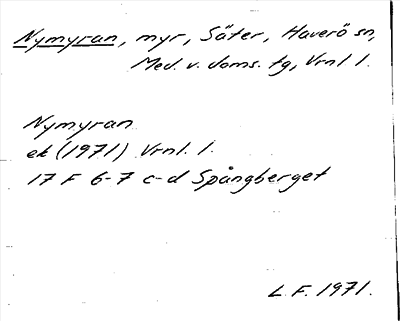 Nymyran, myr, Säter, Haverö sn,
Med. v. doms. tg, Vrnl l.
Nymyran
ek (1971) Vrnl. l.
17 F 6-7 c-d Spångberget
L. F. 1971.